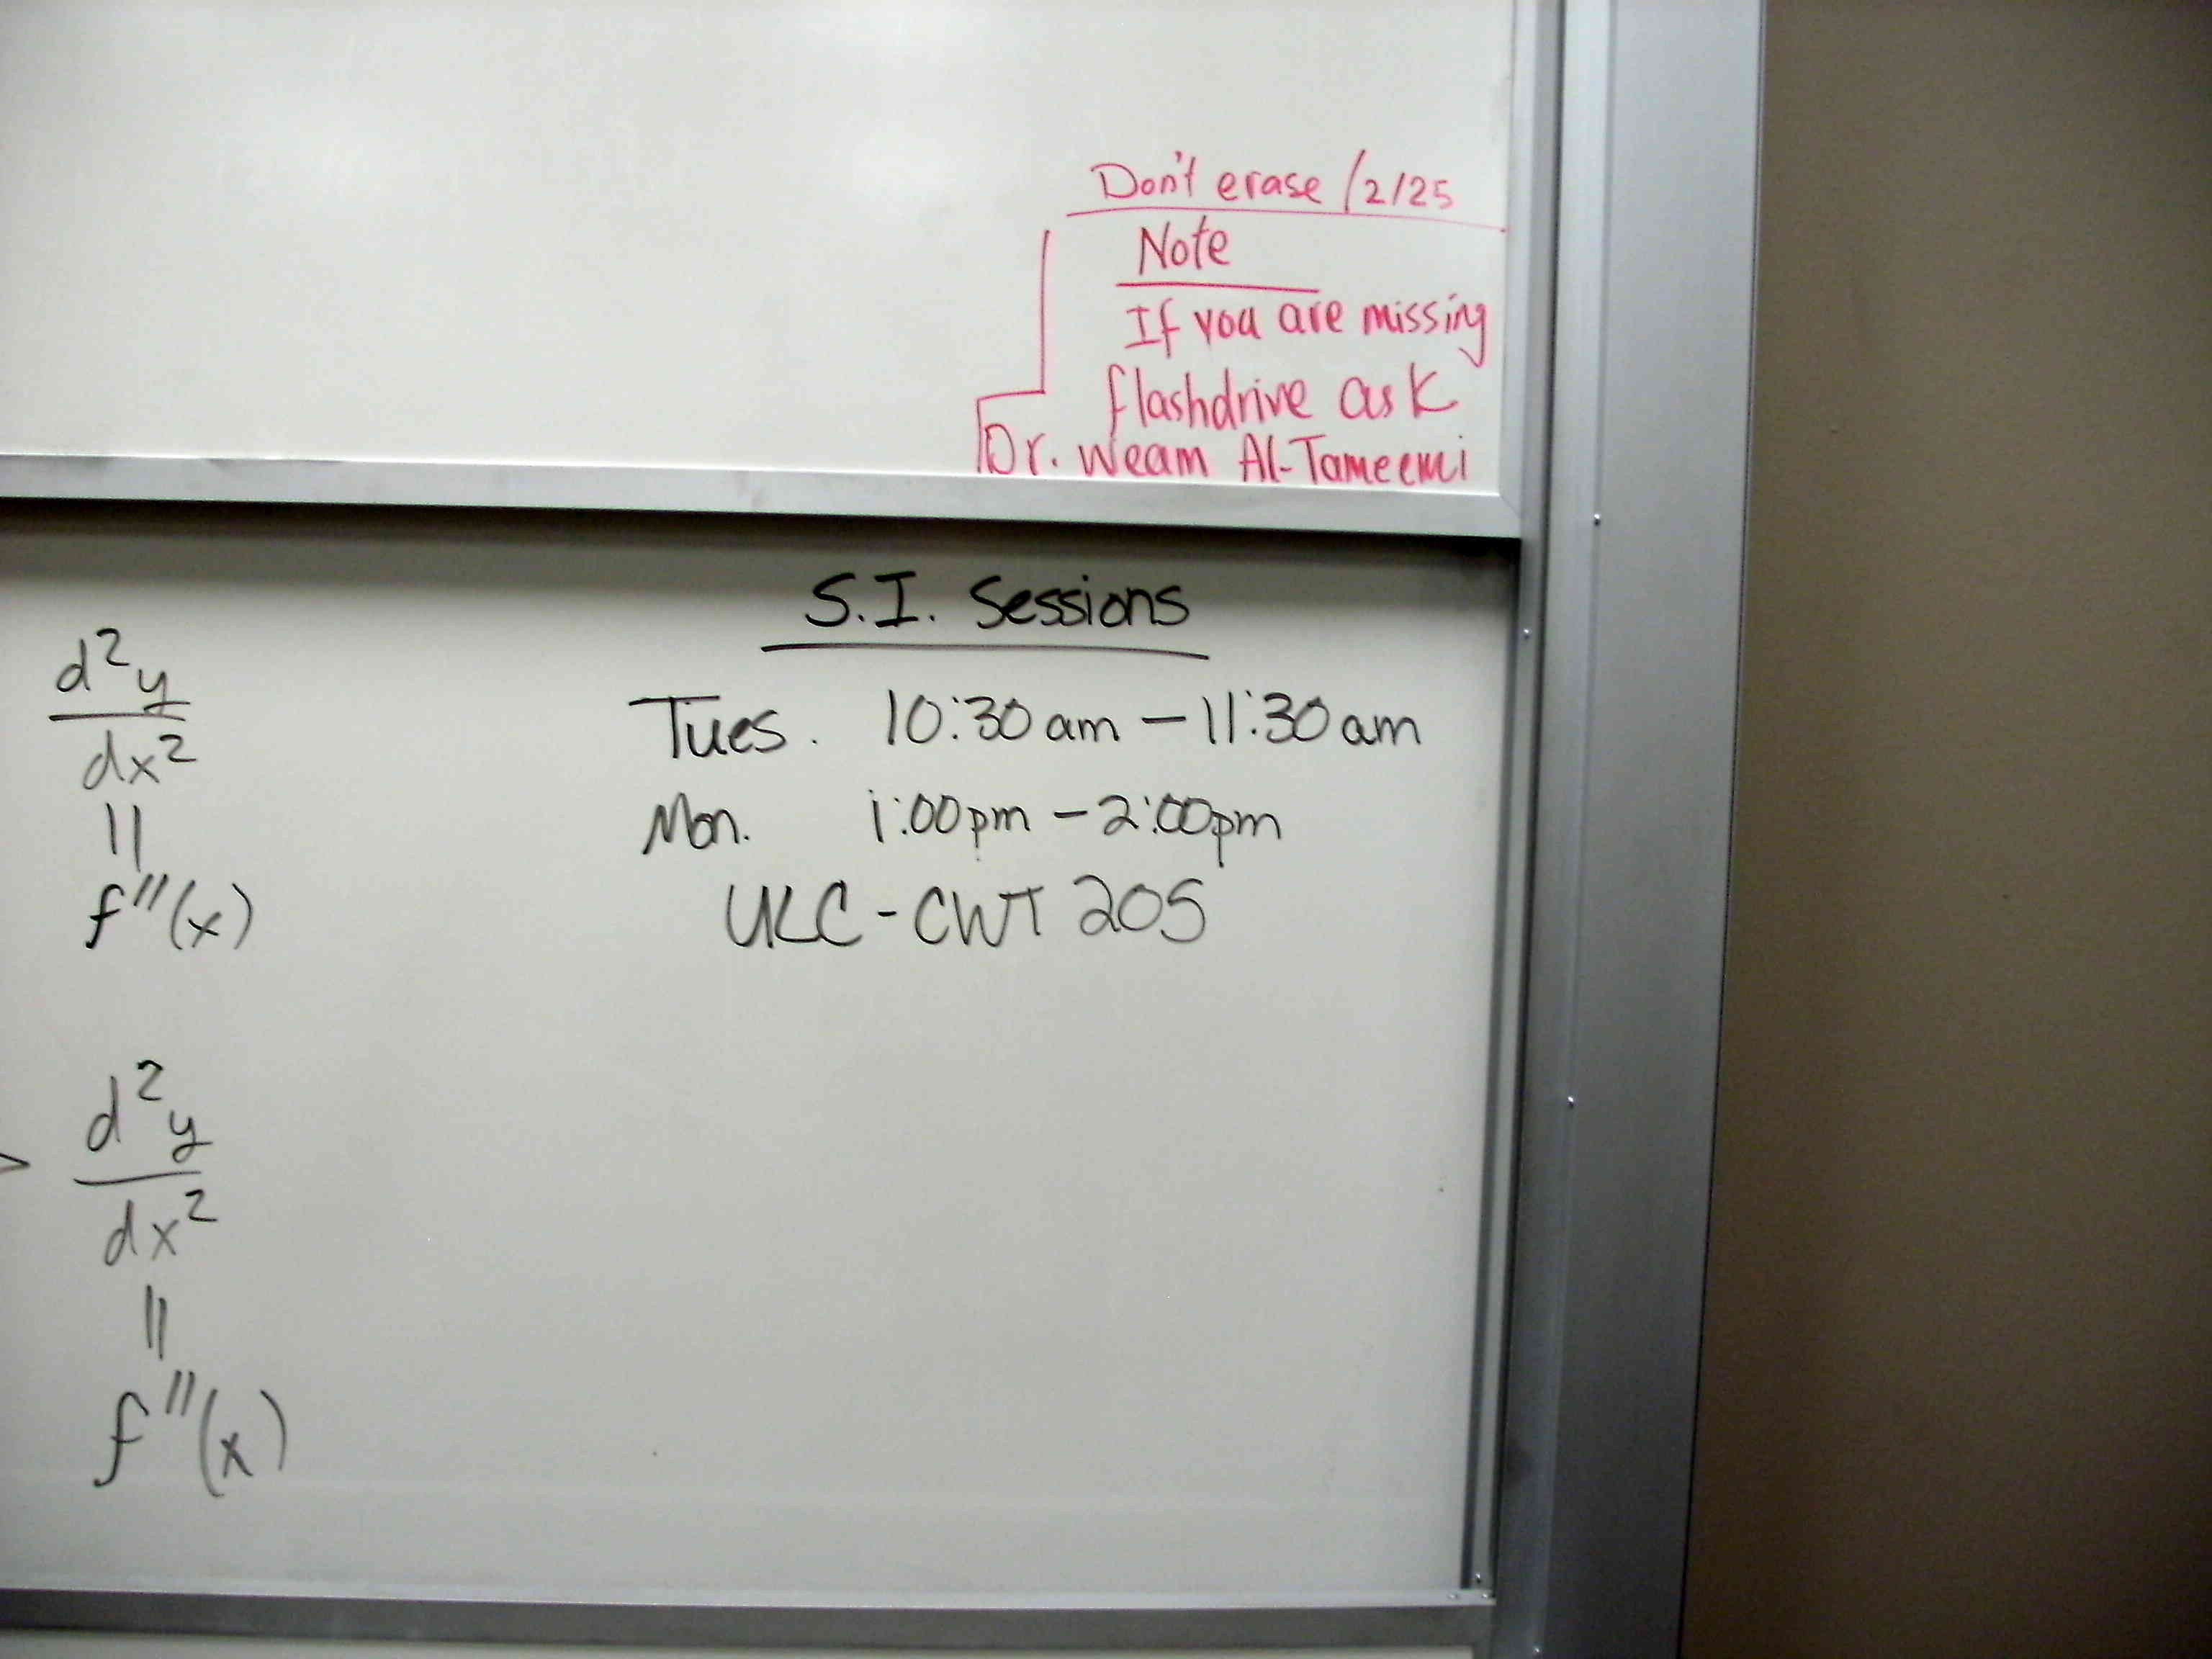 Don't erase /2/25
Note
If you are missing
flashdrive ask
Dr. Weam Al-Tameemi
S.I. Sessions
Tues. 10:30 am – 11:30 am
Mon. 1:00pm – 2:00pm
ULC - CWT 205
d²y
dx²
||
f''(x)
> d²y
dx²
||
f''(x)